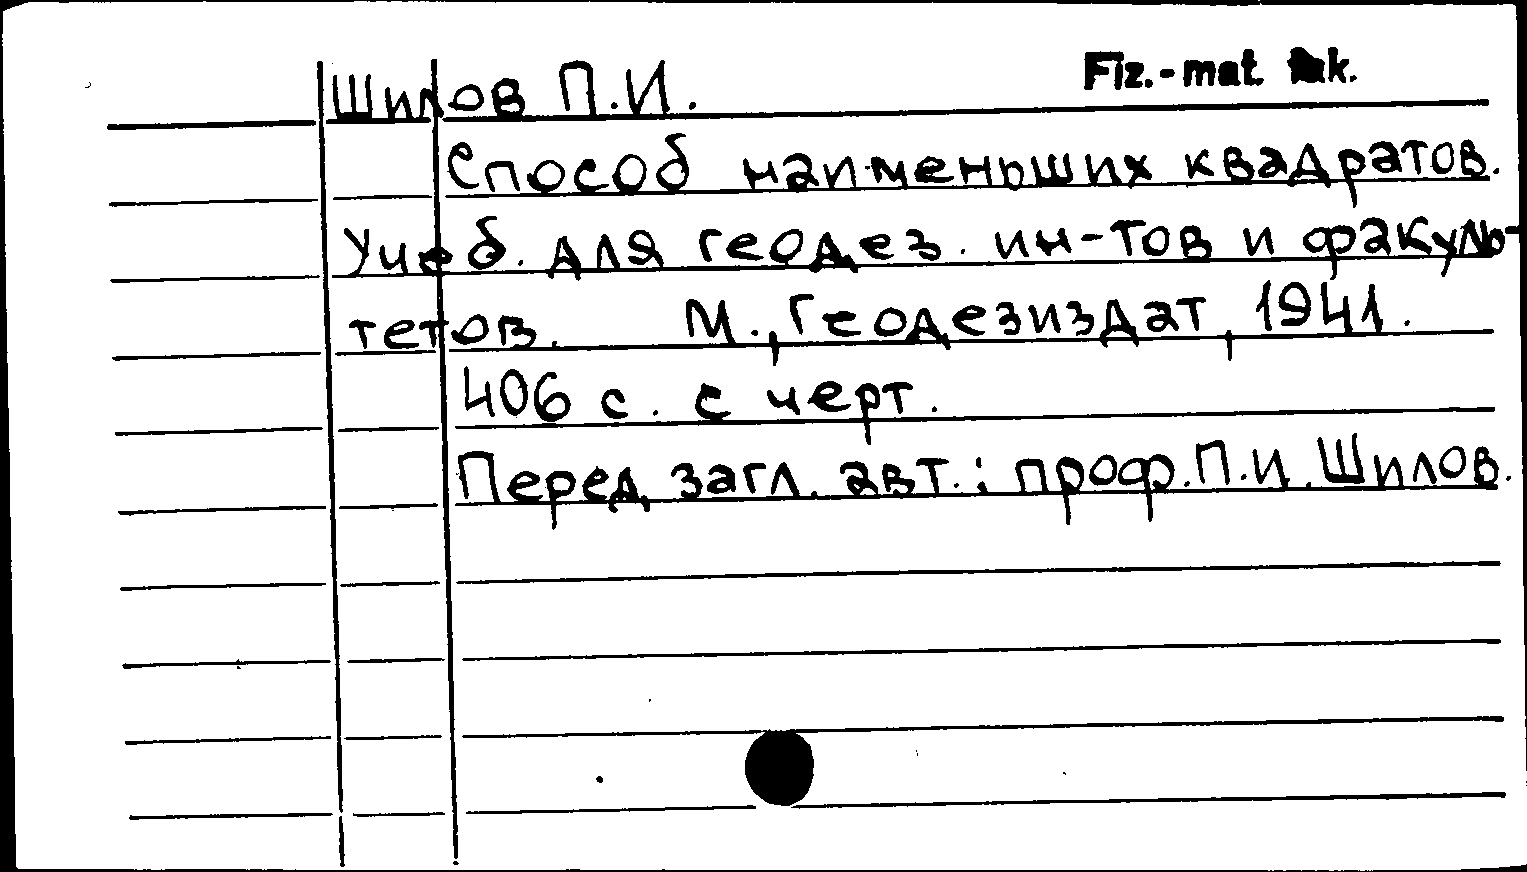 Fiz.-mat. fak.
Шилов П.И.
Способ наименьших квадратов.
Учеб. для геодез. ин-тов и факуль-
тетов. М., Геодезиздат, 1941.
406 с. с черт.
Перед загл. авт.: проф. П.И. Шилов.